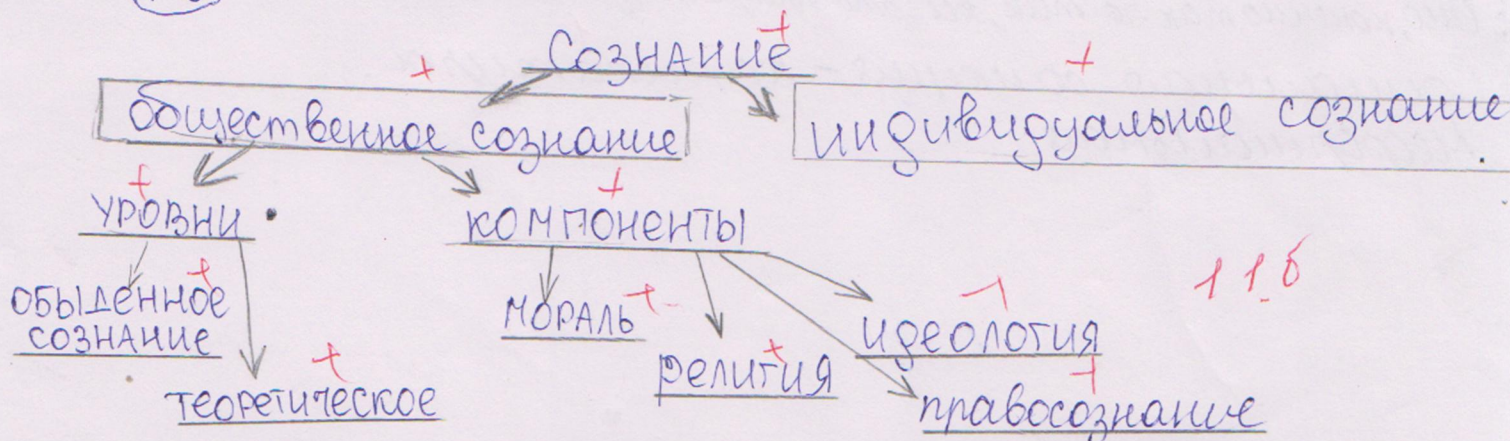 СОЗНАНИЕ
общественное сознание
индивидуальное сознание
уровни
компоненты
обыденное
сознание
теоретическое
мораль
религия
идеология
правосознание
11 б